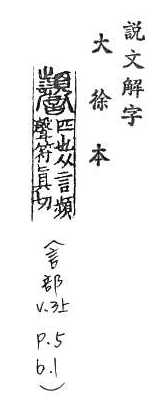 說文解字
大徐本
匹也从言頻
聲符真切
（言部
v.3上
P.5
b.1）